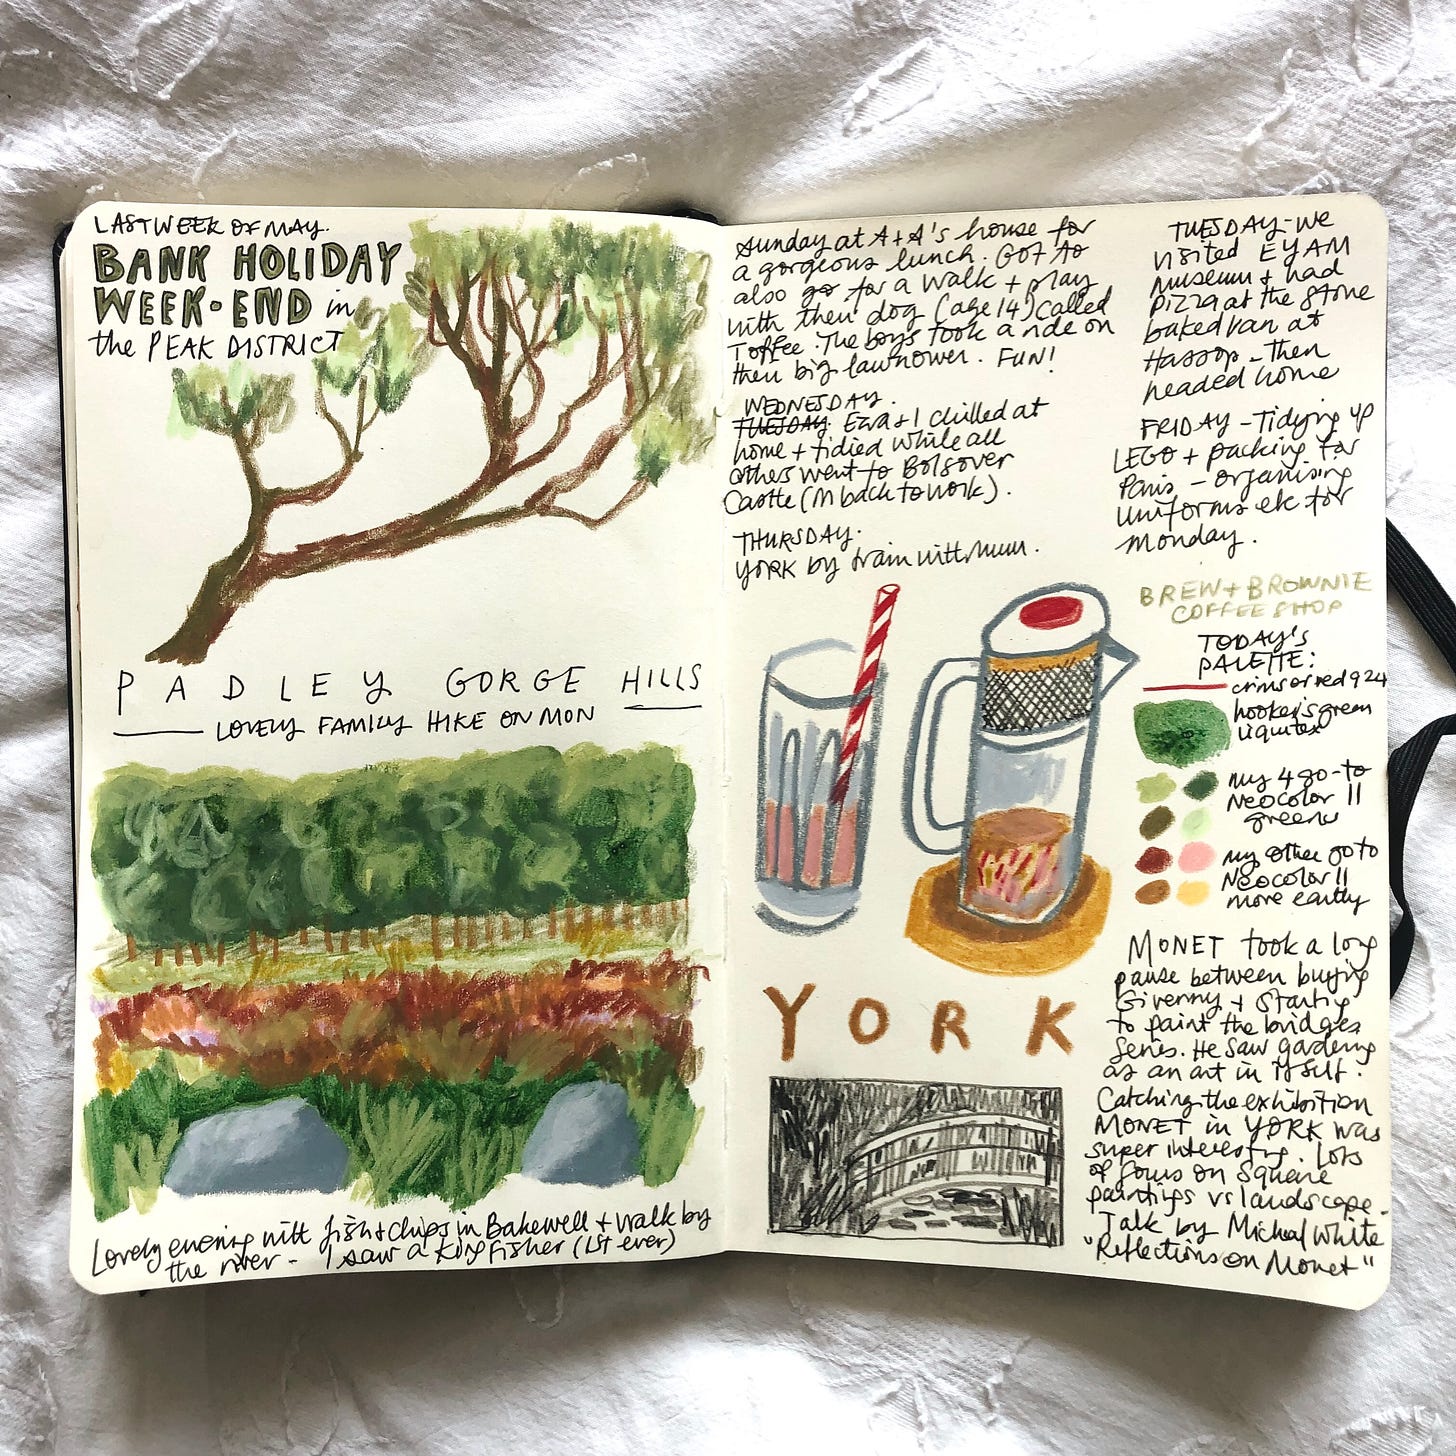 LAST WEEK OF MAY.
BANK HOLIDAY
WEEK-END in
the PEAK DISTRICT
PADLEY GORGE HILLS
LOVELY FAMILY HIKE ON MON
Lovely evening with fish + chips in Bakewell + walk by
the river - I saw a kingfisher (1st ever)
Sunday at A+A's house for
a gorgeous lunch. Got to
also go for a walk + play
with their dog (age 14) called
Toffee. The boys took a ride on
their big lawnmower. FUN!
WEDNESDAY.
TUESDAY. Ezra + I chilled at
home + tidied while all
others went to Bolsover
Castle (M back to work).
THURSDAY.
YORK by train with mum.
YORK
TUESDAY - we
visited EYAM
museum + had
pizza at the stone
baked van at
Hassop - then
headed home
FRIDAY - Tidying up
LEGO + packing for
Paris - organising
uniforms etc for
Monday.
BREW + BROWNIE
COFFEE SHOP
TODAY'S
PALETTE:
crimson red 924
hooker's green
liquitex
my 4 go-to
Neocolor II
greens
my other go to
Neocolor II
more earthy
MONET took a long
pause between buying
Giverny + starting
to paint the bridges
series. He saw gardening
as an art in itself.
Catching the exhibition
MONET in YORK was
super interesting. Lots
of focus on square
paintings vs landscape.
Talk by Michael White
"Reflections on Monet"